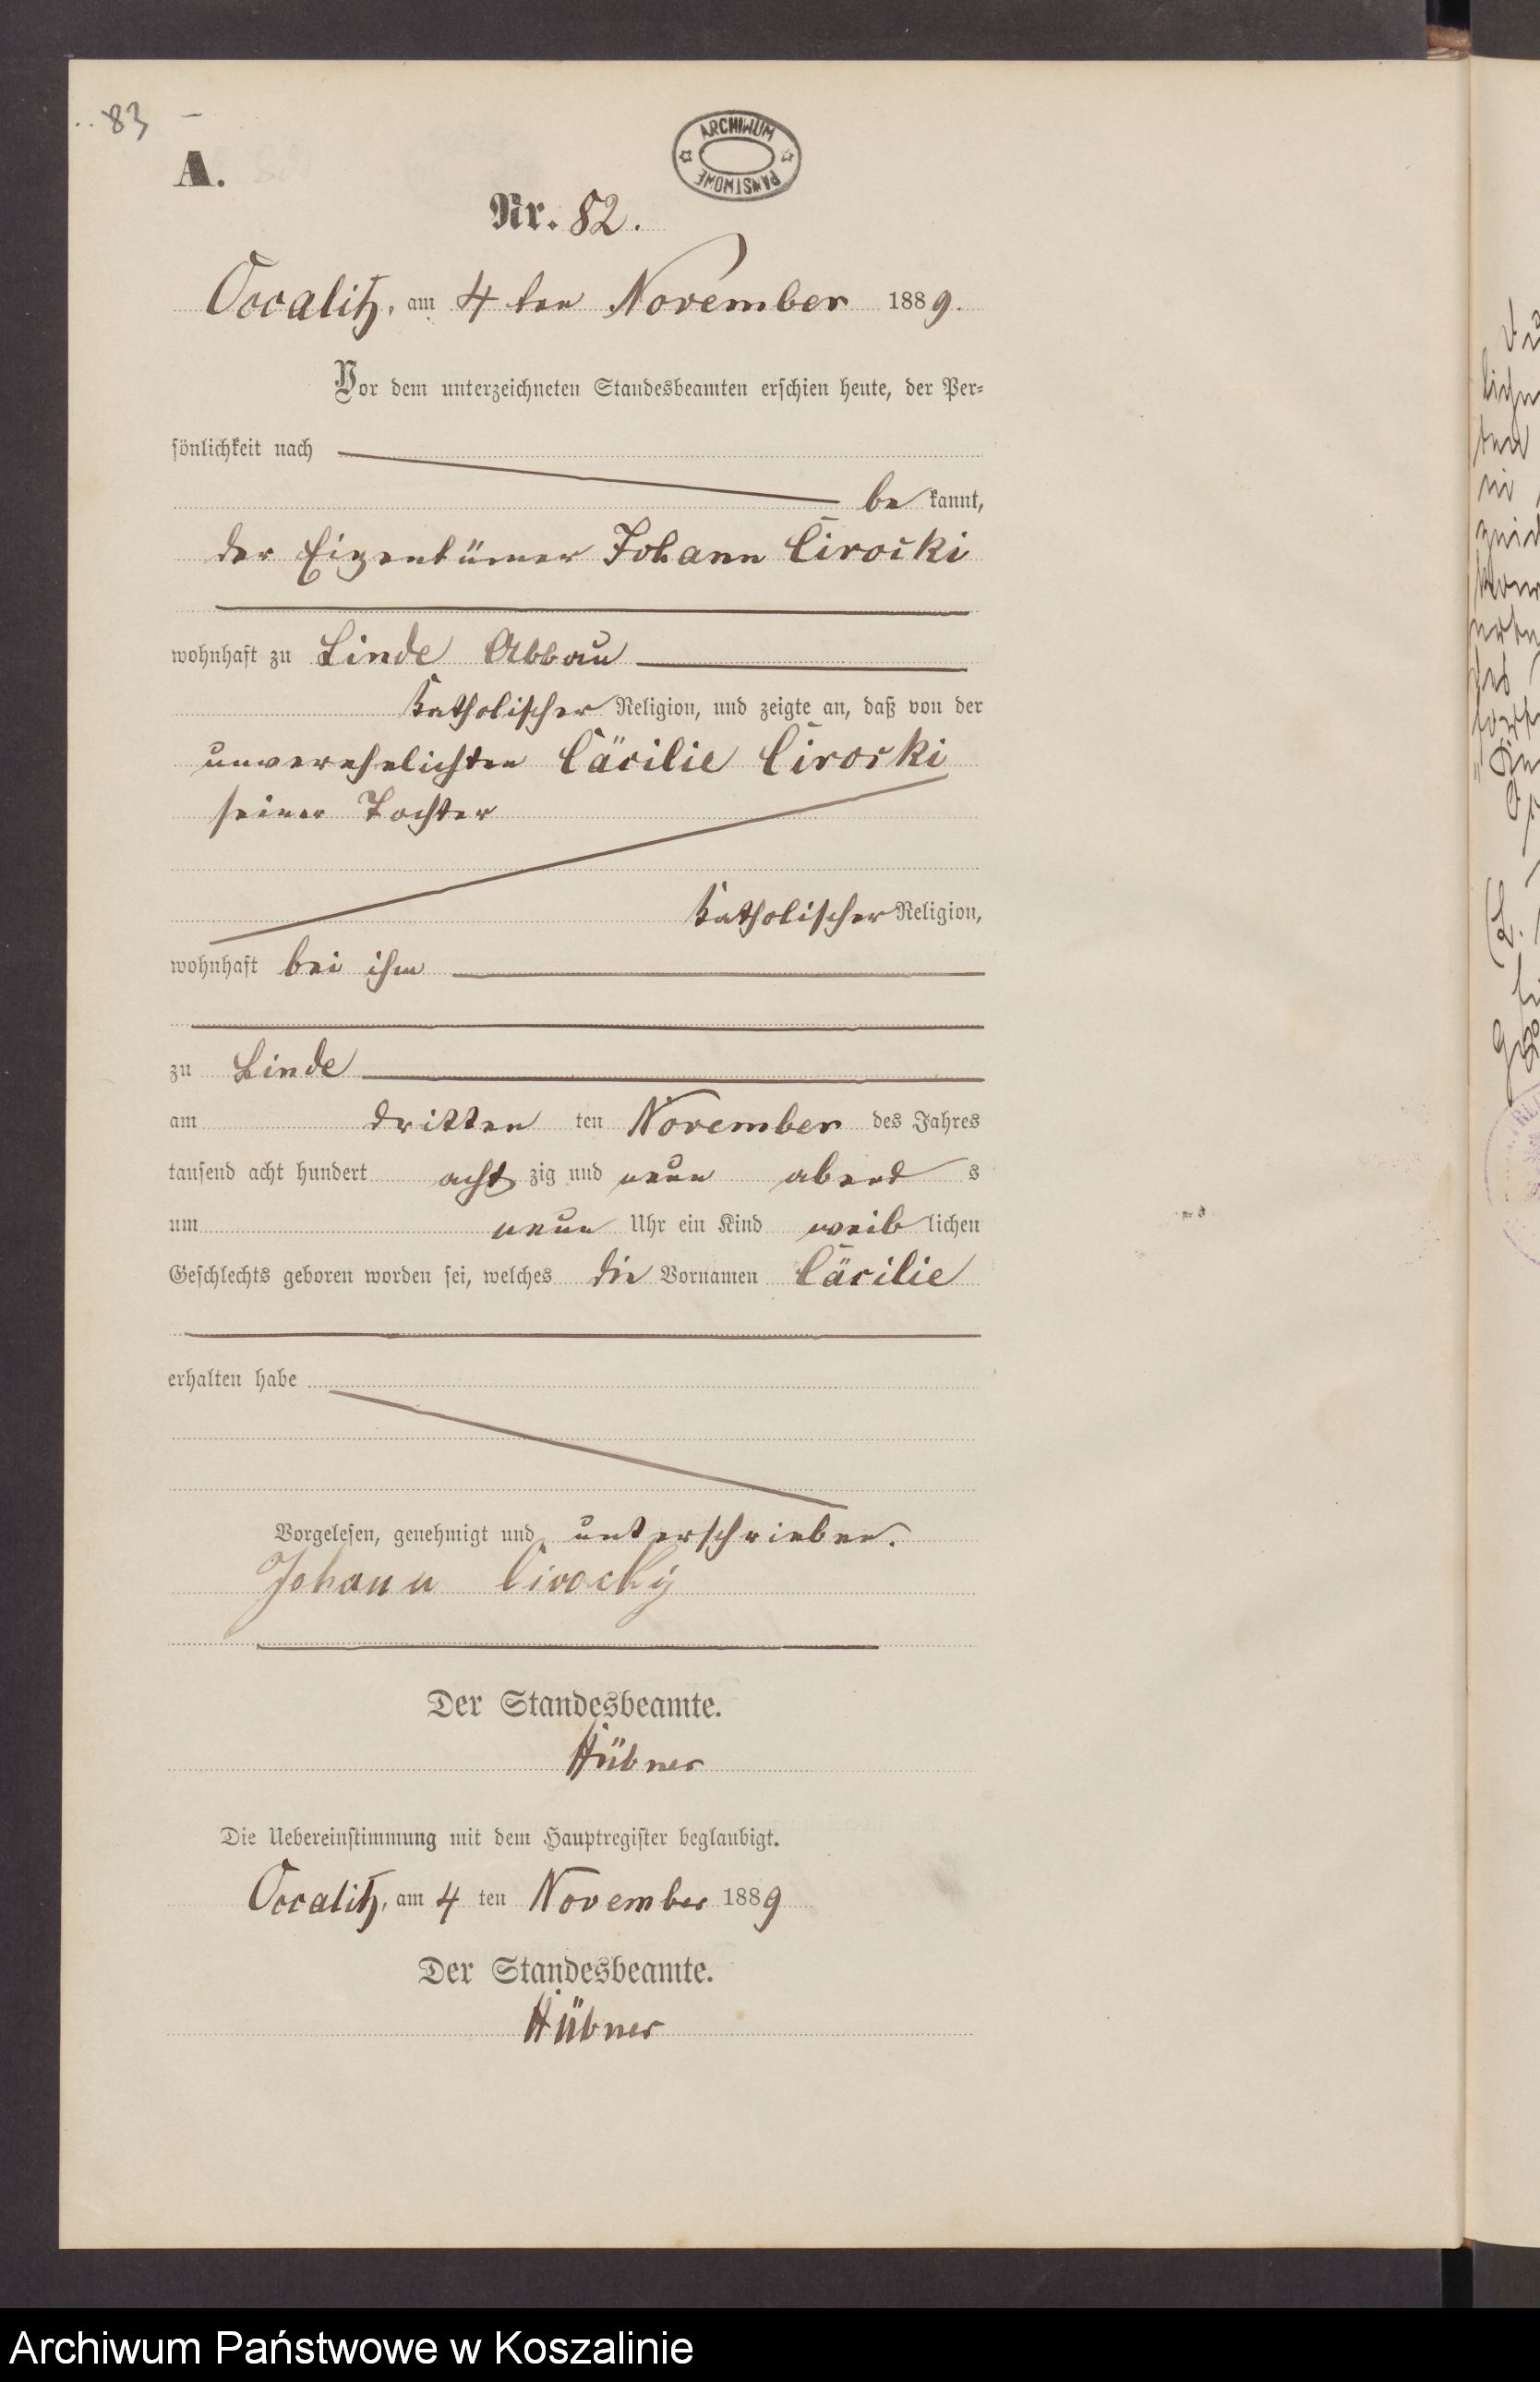 83
A.
ARCHIWUM PAŃSTWOWE
Nr. 82.
Occalitz, am 4 ten November 1889.
Vor dem unterzeichneten Standesbeamten erschien heute, der Per-
sönlichkeit nach
be kannt,
der Eigentümer Johann Cirocki
wohnhaft zu Linde Abbau
katholischer Religion, und zeigte an, daß von der
unverehelichten Cäcilie Cirocki
seiner Tochter
katholischer Religion,
wohnhaft bei ihm
zu Linde
am dritten ten November des Jahres
tausend acht hundert acht zig und neun abend s
um neun Uhr ein Kind weib lichen
Geschlechts geboren worden sei, welches die Vornamen Cäcilie
erhalten habe
Vorgelesen, genehmigt und unterschrieben.
Johann Cirocky
Der Standesbeamte.
Hübner
Die Uebereinstimmung mit dem Hauptregister beglaubigt.
Occalitz, am 4 ten November 1889
Der Standesbeamte.
Hübner
Archiwum Państwowe w Koszalinie